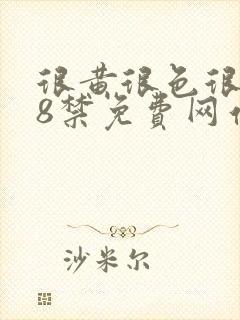 很黄很色很
8禁免费网
沙米尔